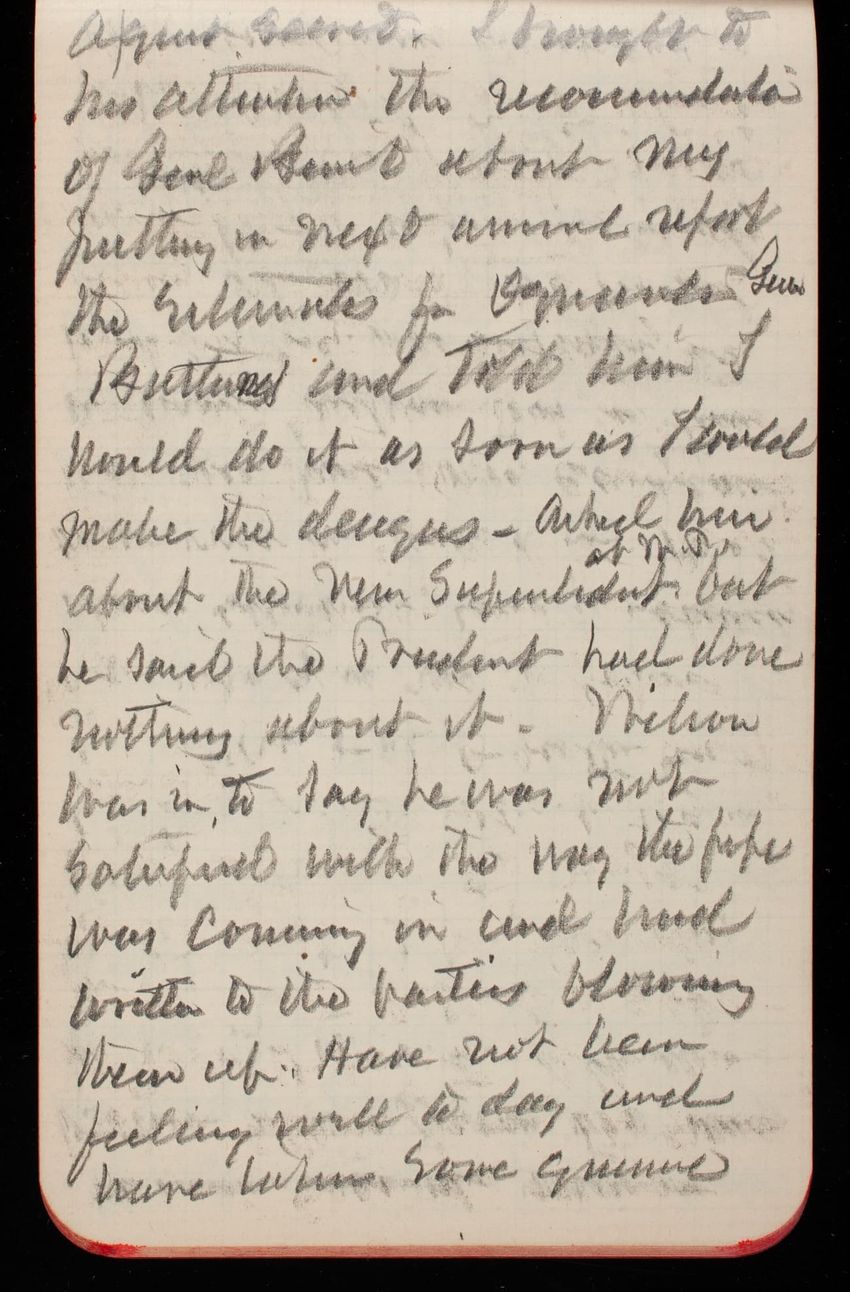 I brought to
his attention the recommendatio
of Genl Benét about my
putting in next annual report
the Estimates for Gun
Batteries and told him I
would do it as soon as I could
make the designs - Asked him
about the new Superintedent at W.P. but
he said the President had done
nothing about it. Wilson
was in, to say he was not
satisfied with the way the pipe
was coming in and had
written to the parties blowing
them up. Have not been
feeling well to day and
have taken some quinine